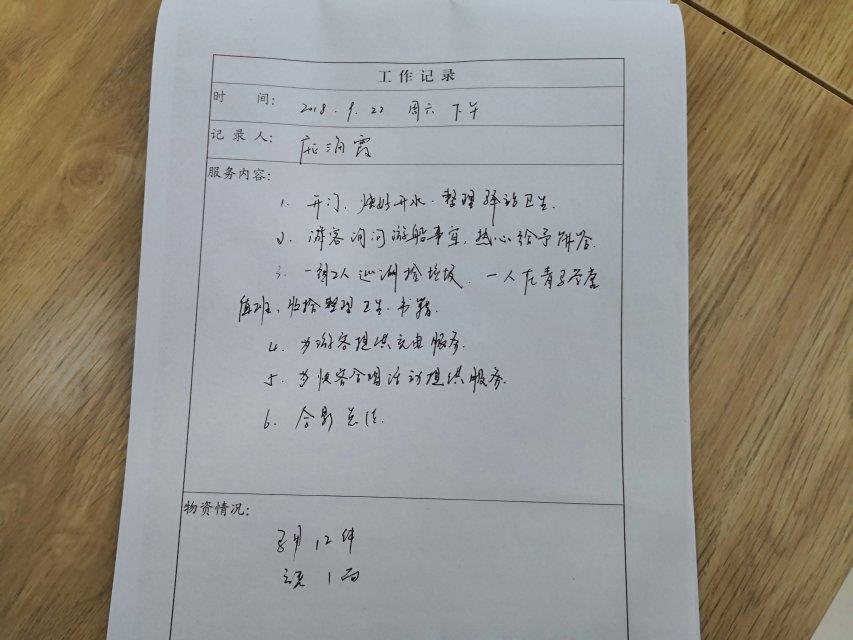 工作记录
时 间: 2018.9.22 周六 下午
记录人: 霞
服务内容:
1. 开门、烧好开水.整理驿站卫生.
2. 游客询问游船事宜,热心给予解答.
3. 一组2人巡湖捡垃圾. 一人在青
值班,收拾整理卫生.书籍.
4. 为游客提供充电服务.
5. 为快客合唱活动提供服务.
6. 合影总结.
物资情况:
12件
1面